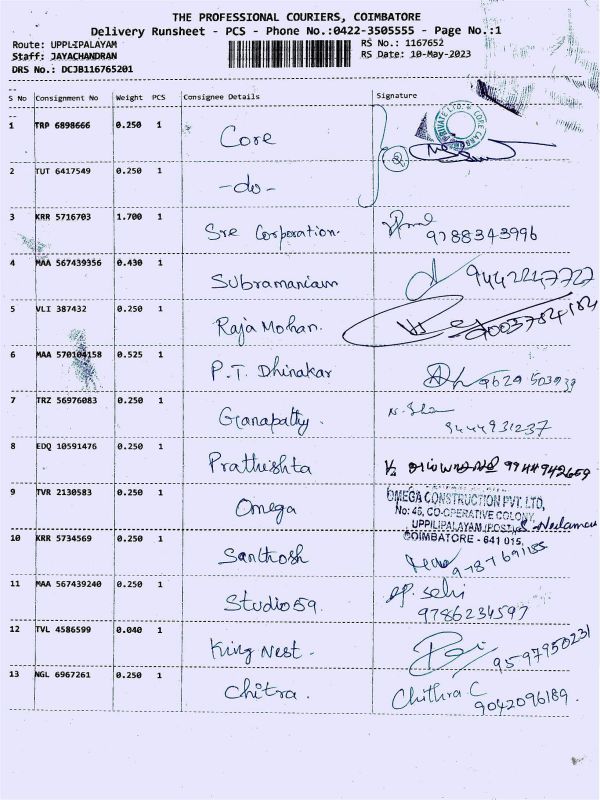 THE PROFESSIONAL COURIERS, COIMBATORE
Delivery Runsheet - PCS - Phone No.:0422-3505555 - Page No.:1
Route: UPPLIPALAYAM RS No.: 1167652
Staff: JAYACHANDRAN RS Date: 10-May-2023
DRS No.: DCJB116765201
S No Consignment No Weight PCS Consignee Details Signature
1 TRP 6898666 0.250 1 Core
2 TUT 6417549 0.250 1 -do-
3 KRR 5716703 1.700 1 Sre Corporation. 9788343996
4 MAA 567439356 0.430 1 Subramaniam 9442247727
5 VLI 387432 0.250 1 Raja Mohan.
6 MAA 570104158 0.525 1 P.T. Dhinakar 9629503939
7 TRZ 56976083 0.250 1 Ganapathy. 9444931237
8 EDQ 10591476 0.250 1 Prathishta 9944942609
9 TVR 2130583 0.250 1 Omega OMEGA CONSTRUCTION PVT. LTD,
No: 46, CO-OPERATIVE COLONY,
UPPILIPALAYAM (POST),
COIMBATORE - 641 015.
10 KRR 5734569 0.250 1 Santhosh
11 MAA 567439240 0.250 1 Studio59. Selvi
9786234597
12 TVL 4586599 0.040 1 King Nest. 9597950231
13 NGL 6967261 0.250 1 Chitra. Chithra C
9042096189.